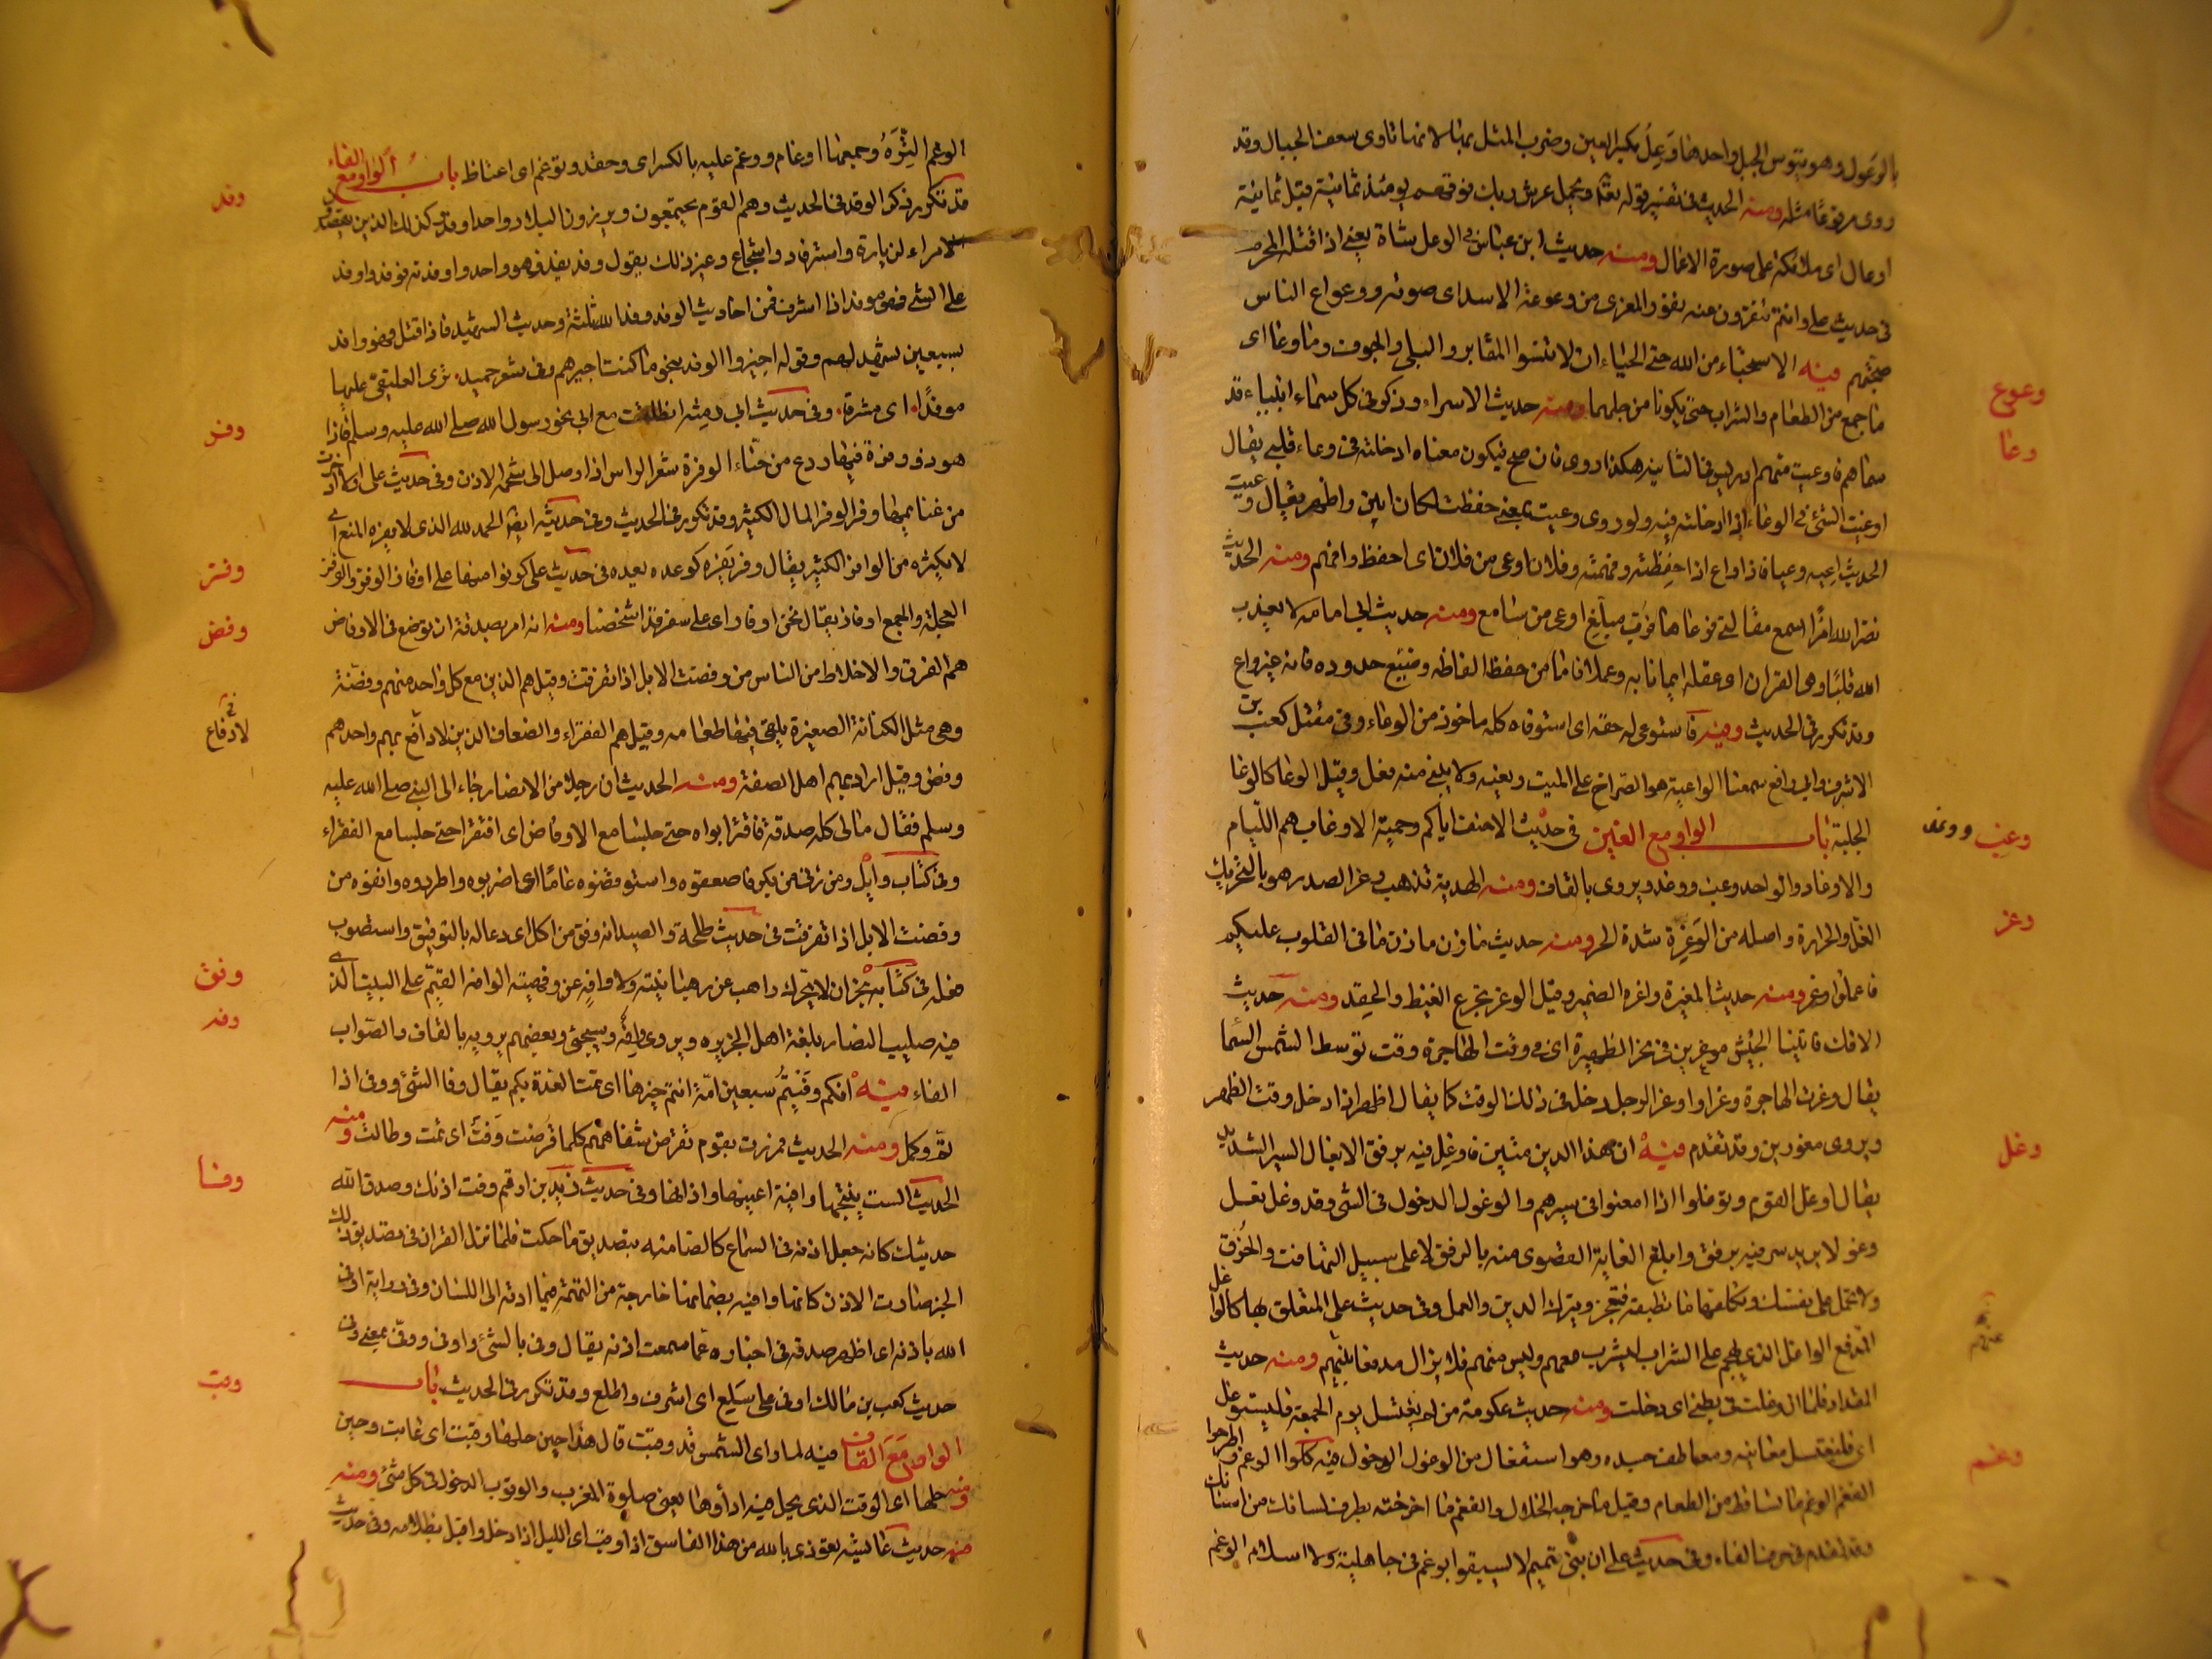 بالوعول وهو تيوس الجبل واحدها وَعِلُ بكسر العين وضرب المثل بها لانها تاوى سعف الجبال وقد
روى مرفوعًا مثله ومنه الحديث فى تفسير قوله تعالى ويحمل عرش ربك فوقهم يومئذ ثمانية قيل ثمانية
اوعال اى ملائكة على صورة الاوعال ومنه حديث ابن عباس فى الوعل شاة يعنى اذا قتله المحرم
فى حديث على وانتم تنفرون عنه نفور المعزى من وعوعة الاسد اى صوته ووعواع الناس
ضجتهم فيه الاستحياء من الله حق الحياء ان لا تنسوا المقابر والبلى والجوف وما وعا اى
ما جمع من الطعام والشراب حتى يكونا من حلهما ومنه حديث الاسراء وذكر فى كل سماء انبياء قد
سماهم فاوعيت منهم ادريس فى الثانية هكذا روى فان صح فيكون معناه ادخلته فى وعاء قلبى يقال
اوعيت الشئ فى الوعاء اذا ادخلته فيه ولو روى وعيت بمعنى حفظت لكان ابين واظهر يقال وعيت
الحديث اعيه وعيا فانا واع اذا حفظته وفهمته وفلان اوعى من فلان اى احفظ وافهم ومنه الحديث
نضر الله امرًا سمع مقالتى فوعاها فرب مبلّغ اوعى من سامع ومنه حديث ابى امامه لا يعذب
الله قلبًا وعى القران اى عقله ايمانا به وعملا فاما من حفظ الفاظه وضيع حدوده فانه غير واع
وقد تكرر فى الحديث وفيه فاستوعى له حقه اى استوفاه كله ماخوذ من الوعاء وفى مقتل كعب بن
الاشرف وابى رافع سمعنا الواعية هو الصراخ على الميت ونعيه ولا يبنى منه فعل وقيل الوعا كالوغا
الجلبة باب الواو مع الغين فى حديث الاحنف اياكم وحمية الاوغاب هم اللئام
والاوغاد والواحد وغب ووغد ويروى بالقاف ومنه الهدية تذهب وغر الصدر هو بالتحريك
الغل والحرارة واصله من الوَغرة شدة الحر ومنه حديث مازن ما فى القلوب عليكم
فاعملوا وغر ومنه حديث المغيرة واغرة الضمير وقيل الوغر تجرع الغيظ والحقد ومنه حديث
الافك فاتينا الجيش موغرين فى نحر الظهيرة اى فى وقت الهاجرة وقت توسط الشمس السما
يقال وغرت الهاجرة وغرا واوغر الرجل دخل فى ذلك الوقت كما يقال اظهر اذا دخل وقت الظهر
ويروى مغورين وقد تقدم فيه ان هذا الدين متين فاوغل فيه برفق الايغال السير الشديد
يقال اوغل القوم وتوغلوا اذا امعنوا فى سيرهم والوغول الدخول فى الشى وقد وغل يغل
وغولا يريد سر فيه برفق وابلغ الغاية القصوى منه بالرفق لا على سبيل التهافت والخرق
ولا تحمل على نفسك وتكلفها ما لا تطيقه فتعجز وتترك الدين والعمل وفى حديث على المتعلق بها كالواغل
المدفع الواغل الذى يهجم على الشراب ليشرب معهم وليس منهم فلا يزال مدفعا بينهم ومنه حديث
المقداد فلما ان وغلت فى بطنى اى دخلت ومنه حديث عكرمة من لم يغتسل يوم الجمعة فليستوغل
اى فليغتسل مغابنه ومعاطف جسده وهو استفعال من الوغول الدخول فيه كلوا الوغم واطرحوا
الفغم الوغم ما تساقط من الطعام وقيل ما اخرجه الخلال والفغم ما اخرجته بطرف لسانك من اسنانك
وقد تقدم فى حرف الفاء وفى حديث على ان بنى تميم لا يسبقوا بوغم فى جاهلية ولا اسلام الوغم
وعوع
وعا
وغب ووغد
وغر
وغل
وغم
الوغم التِّرَةُ وجمعها اوغام ووغم عليه بالكسر اى وحقد وتوغم اى اغتاظ باب الواو مع الفاء
قد تكرر ذكر الوفد فى الحديث وهم القوم يجتمعون ويردون البلاد واحدا وفد وكذلك الذين يقصدون
الامراء لزيارة واسترفاد وانتجاع وغير ذلك يقول وفد يفد فهو واحد واوفدته فوفد واوفد
على الشئ فهو موفد اذا اشرف فمن احاديث الوفد وفد الله ثلثة وحديث الشهيد فاذا قتل فهو وافد
بسبعين يشهد لهم وقوله اجيزوا الوفد بنحو ما كنت اجيزهم وفى شعر حميد ترى العليفىّ عليها
موفدًا اى مشرفا وفى حديث ابى رمثه انطلقت مع ابى نحو رسول الله صلى الله عليه وسلم فاذا
هو ذو وفرة فيها ردع من حنّاء الوفرة شعر الراس اذا وصل الى شحمة الاذن وفى حديث على ولا ادخرت
من غنايمها وفرا الوفر المال الكثير وقد تكرر فى الحديث وفى حديثه ايضا الحمد لله الذى لا يفره المنع اى
لا يكثره من الوافر الكثير يقال وفره يفره كوعده يعده فى حديث على كونوا منها على اوفاز الوفز والوفز
العجلة والجمع اوفاز يقال نحن اوفاز اى على سفر قد اشخصنا ومنه انه امر بصدقة ان توضع فى الاوفاض
هم الفرق والاخلاط من الناس من وفضت الابل اذا تفرقت وقيل هم الذين مع كل واحد منهم وفضة
وهى مثل الكنانة الصغيرة يلقى فيها طعامه وقيل هم الفقراء والضعاف الذين لا دافع بهم واحدهم
وفض وقيل اراد بهم اهل الصفة ومنه الحديث ان رجلا من الانصار جاء الى النبى صلى الله عليه
وسلم فقال مالى كله صدقة فاقتر ابواه حتى جلسا مع الاوفاض اى افتقرا حتى جلسا مع الفقراء
وفى كتاب وايل ومن زنى من بكر فاصقعوه واستوفضوه عاما اى اضربوه واطردوه وانفوه من
وفضت الابل اذا تفرقت فى حديث طلحة والصيد انه وفق من اكل اى دعا له بالتوفيق واستصوب
فعله فى كتابه نجران لا يحرك راهب عن رهبانيته ولا وافه عن وفهيته الوافه القيّم على البيت الذى
فيه صليب النصار بلغة اهل الجزيره ويروى واهف وسيجئ وبعضهم يرويه بالقاف والصواب
الفاء فيه انكم وفيتم سبعين امة انتم خيرها اى تمت العدة بكم يقال وفا الشئ ووفى اذا
تمّ وكمل ومنه الحديث فمررت بقوم تقرض شفاههم كلما قرضت وَفَت اى تمت وطالت ومنه
الحديث الست ينتجها وافية اعينها واذانها وفى حديث زيد بن ارقم وفت اذنك وصدق الله
حديثك كانه جعل اذنه فى السماع كالضامنه بتصديق ما حكت فلما نزل القران فى تصديق ذلك
الخبر صارت الاذن كانها وافية بضمانها خارجة من التهمة فيما ادته الى اللسان وفى رواية اوفى
الله باذنه اى اظهر صدقه فى اخباره عما سمعت اذنه يقال وفى بالشئ واوفى ووفّى بمعنى وفى
حديث كعب بن مالك اوفى على سلع اى اشرف واطلع وقد تكرر فى الحديث باب
الواو مَعَ القاف فيه لما راى الشمس قد وقبت قال هذا حين حلها وقبت اى غابت وحين
حلها اى الوقت الذى يحل فيه اداؤها يعنى صلوة المغرب والوقوب الدخول فى كل شئ ومنه
ومنه حديث عائشه تعوذى بالله من هذا الغاسق اذا وقب اى الليل اذا دخل واقبل بظلامه وفى حديث
وفد
وفر
وفز
وفض
لا دفاع
وفق
وفه
وفا
وقب